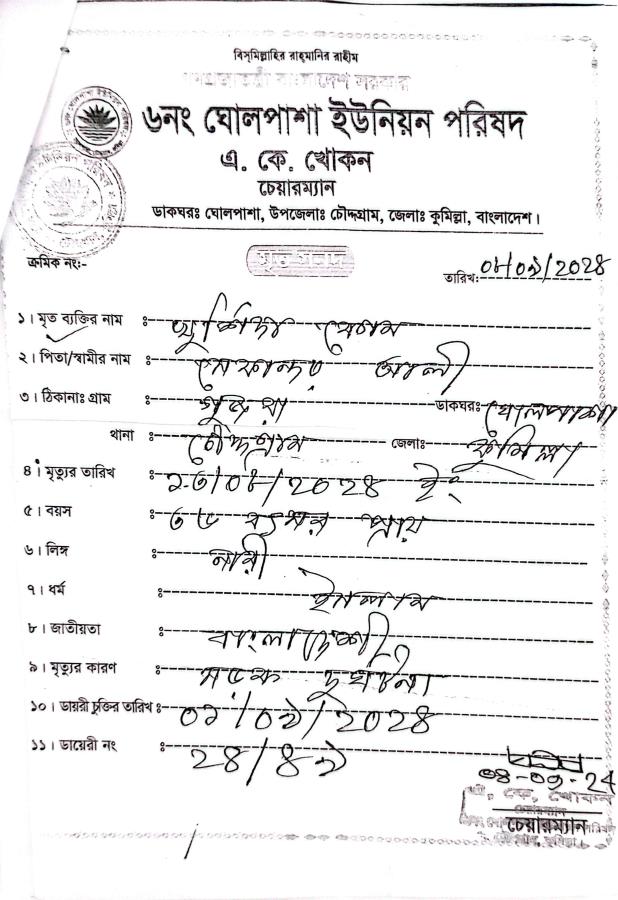 বিস্‌মিল্লাহির রাহ্‌মানির রাহীম
গণপ্রজাতন্ত্রী বাংলাদেশ সরকার
৬নং ঘোলপাশা ইউনিয়ন পরিষদ
এ. কে. খোকন
চেয়ারম্যান
ডাকঘরঃ ঘোলপাশা, উপজেলাঃ চৌদ্দগ্রাম, জেলাঃ কুমিল্লা, বাংলাদেশ।
ক্রমিক নং:-
মৃত্যু সনদ
তারিখ:
১। মৃত ব্যক্তির নাম ঃ খুর্শিদা বেগম
২। পিতা/স্বামীর নাম ঃ সেকান্দর আলী
৩। ঠিকানাঃ গ্রাম ঃ ডাকঘরঃ ঘোলপাশা
থানা ঃ চৌদ্দগ্রাম জেলাঃ কুমিল্লা
৪। মৃত্যুর তারিখ ঃ ইং
৫। বয়স ঃ বৎসর প্রায়
৬। লিঙ্গ ঃ নারী
৭। ধর্ম ঃ ইসলাম
৮। জাতীয়তা ঃ বাংলাদেশী
৯। মৃত্যুর কারণ ঃ সড়ক দুর্ঘটনা
১০। ডায়রী চুক্তির তারিখ ঃ ০২/০৯/2028
১১। ডায়েরী নং ঃ 28/৪৯
এ. কে. খোকন
চেয়ারম্যান
চেয়ারম্যান